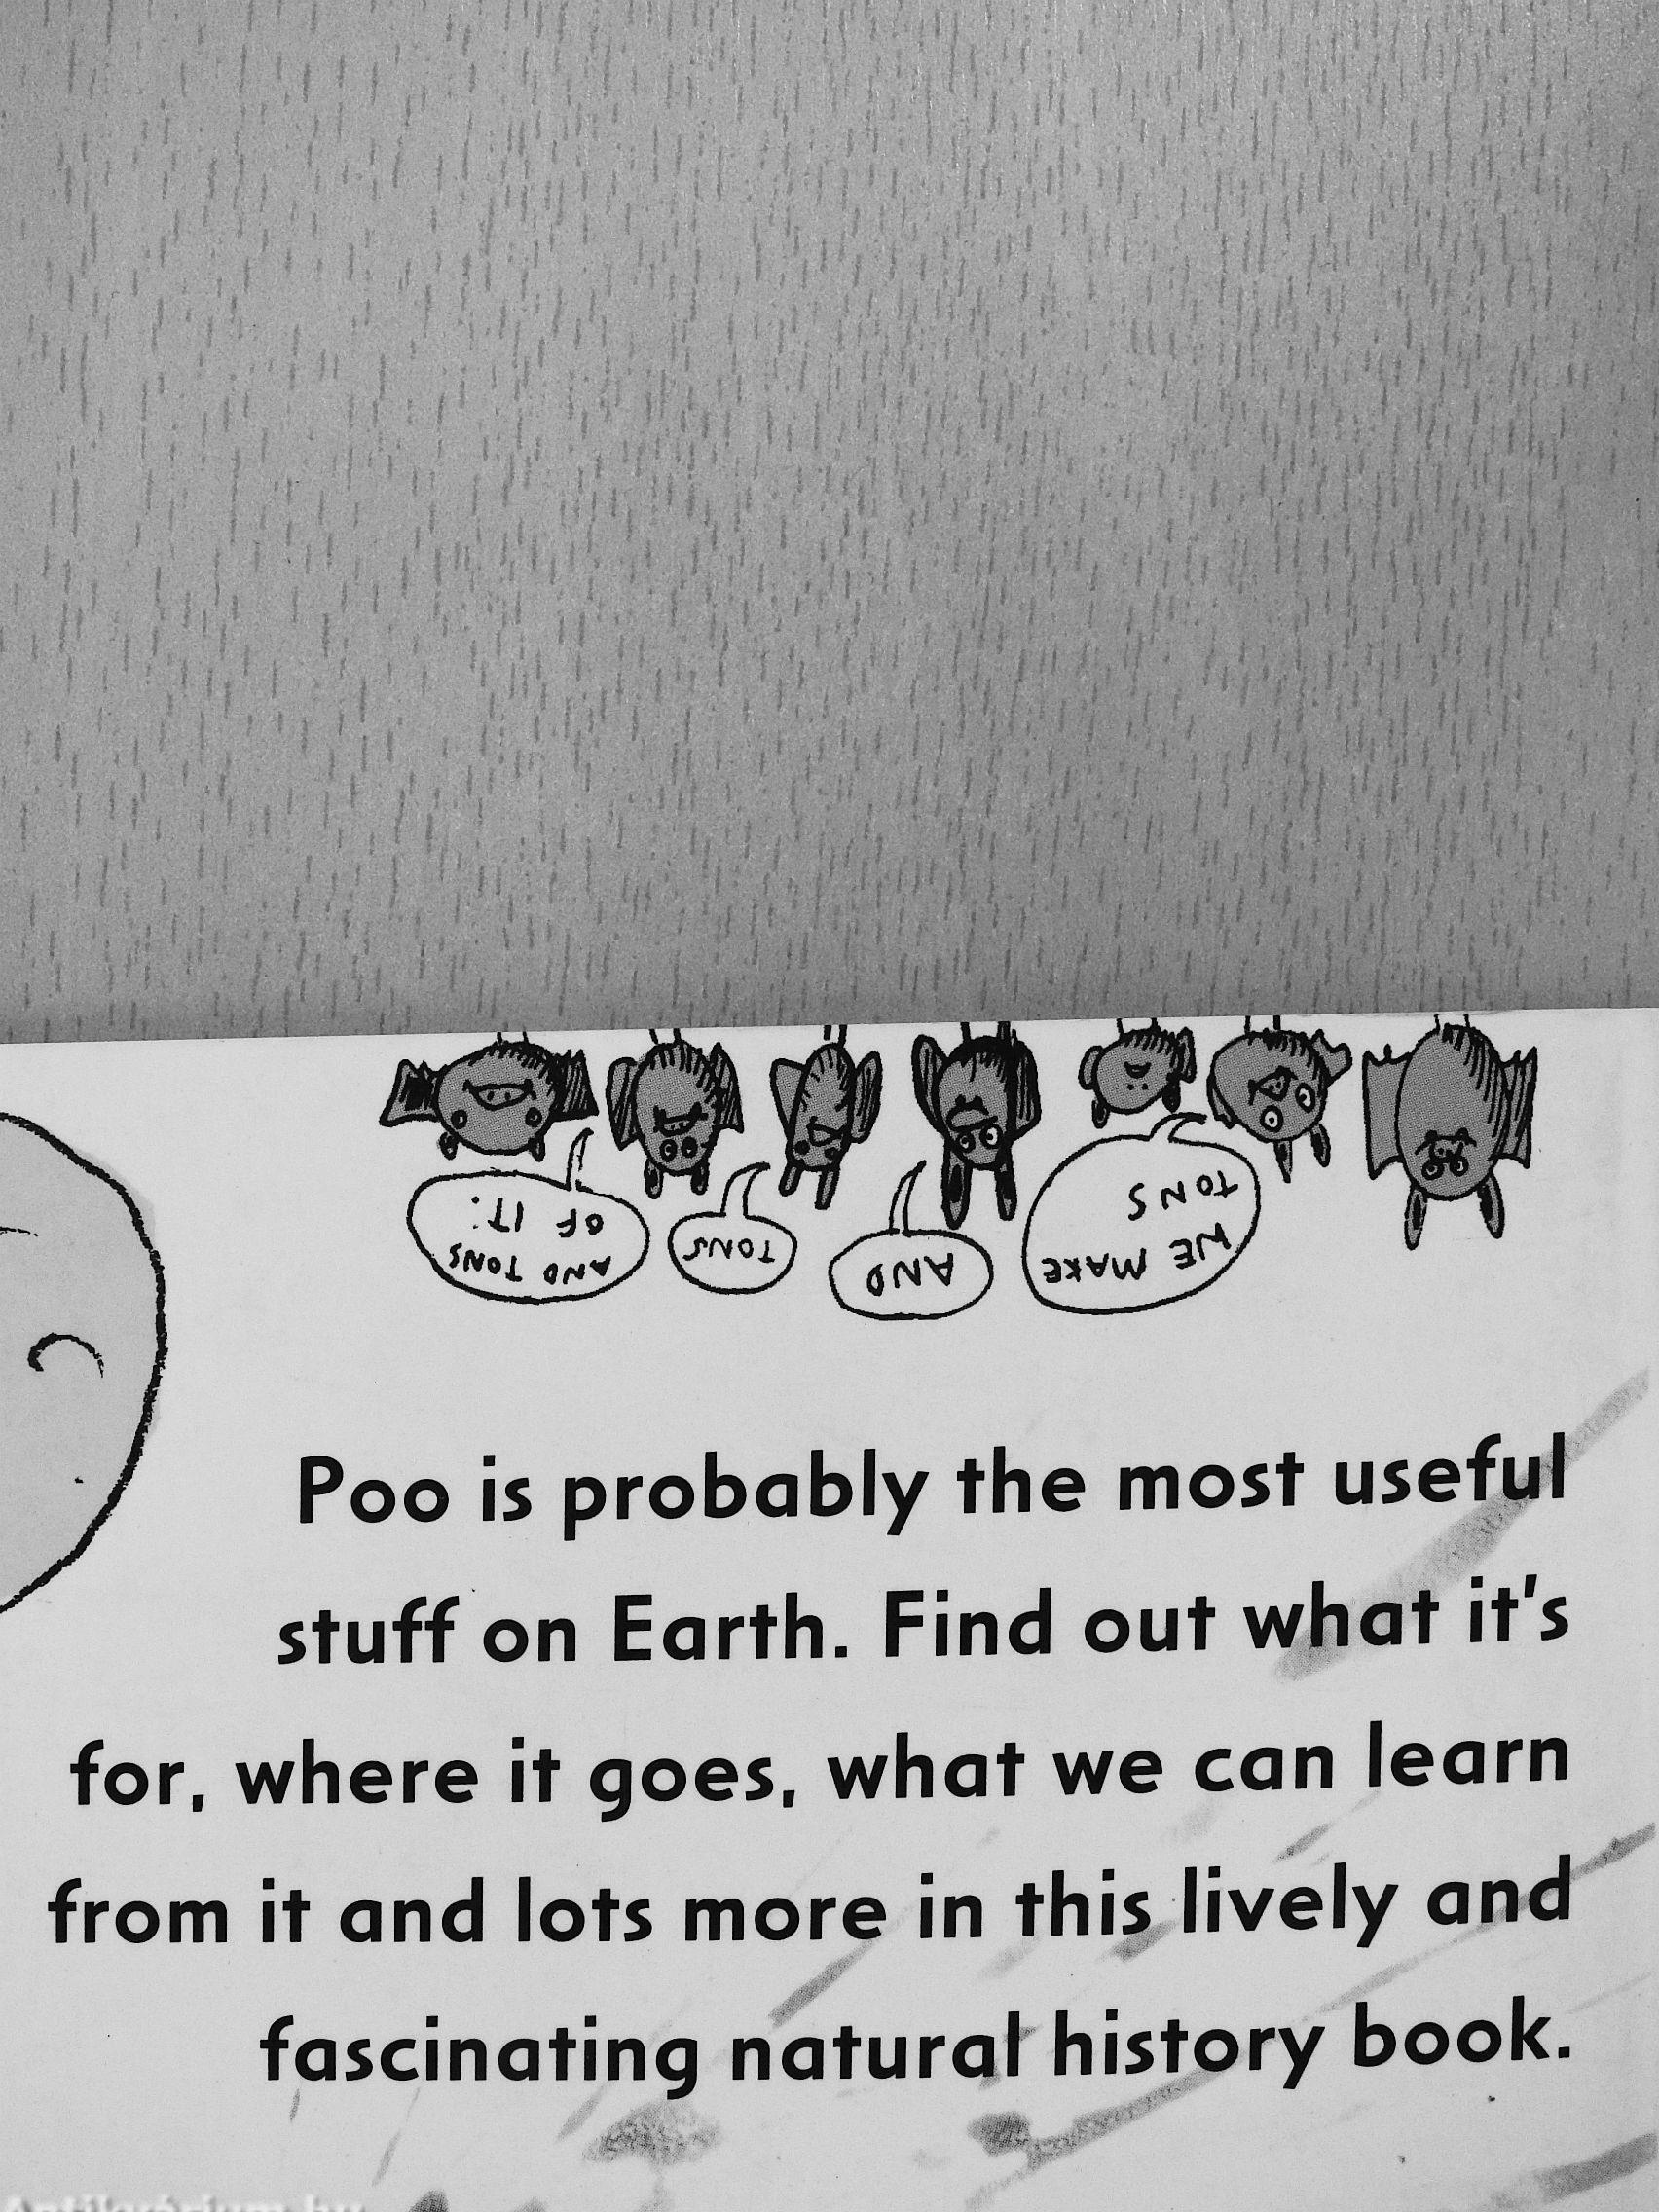 WE MAKE
TONS
AND
TONS
AND TONS
OF IT!
Poo is probably the most useful
stuff on Earth. Find out what it's
for, where it goes, what we can learn
from it and lots more in this lively and
fascinating natural history book.
Antikvárium.hu